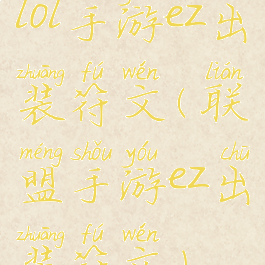 lol手游ez出
zhuāng fú wén lián
装符文(联
méng shǒu yóu chū
盟手游ez出
zhuāng fú wén
装符文)